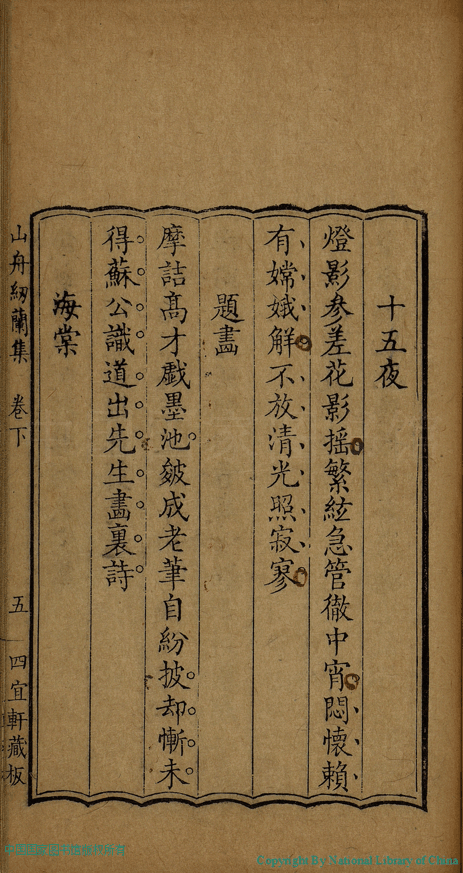 十五夜
燈影参差花影摇繁絃急管徹中宵悶懷賴
有嫦娥解不放清光照寂寥
題畫
摩詰髙才戱墨池皴成老筆自紛披却慚未
得蘇公識道出先生畵裏詩
海棠
山舟紉蘭集 卷下 五 四宜軒藏板
Copyright By National Library of China